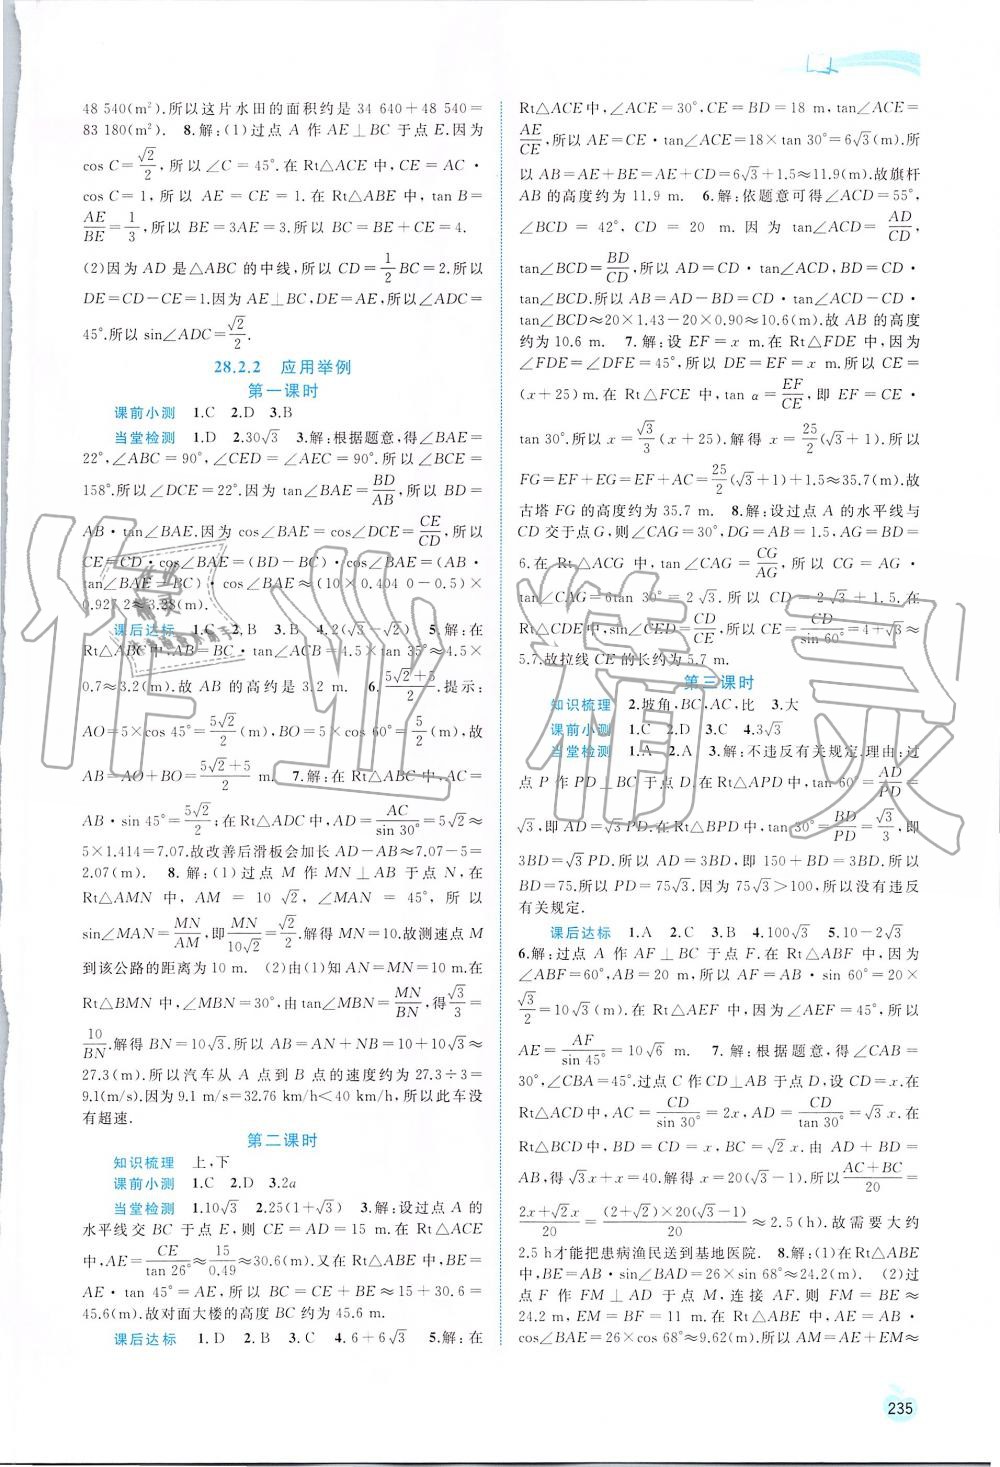 48 540(m²).所以这片水田的面积约是 34 640+48 540=
83 180(m²). 8.解:(1)过点 A 作 AE⊥BC 于点E.因为
cos C=√2/2,所以∠C=45°.在 Rt△ACE 中,CE=AC·
cos C=1,所以 AE=CE=1.在 Rt△ABE 中,tan B=
AE/BE=1/3,所以 BE=3AE=3.所以 BC=BE+CE=4.
(2)因为 AD 是△ABC 的中线,所以 CD=1/2BC=2.所以
DE=CD-CE=1.因为 AE⊥BC,DE=AE,所以∠ADC=
45°.所以 sin∠ADC=√2/2.
28.2.2 应用举例
第一课时
课前小测 1.C 2.D 3.B
当堂检测 1.D 2.30√3 3.解:根据题意,得∠BAE=
22°,∠ABC=90°,∠CED=∠AEC=90°.所以∠BCE=
158°.所以∠DCE=22°.因为 tan∠BAE=BD/AB,所以 BD=
AB·tan∠BAE.因为 cos∠BAE=cos∠DCE=CE/CD,所以
CE=CD·cos∠BAE=(BD-BC)·cos∠BAE=(AB·
tan∠BAE-BC)·cos∠BAE≈(10×0.404 0-0.5)×
0.927 2≈3.28(m).
课后达标 1.C 2.B 3.B 4.2(√3-√2) 5.解:在
Rt△ABC 中,AB=BC·tan∠ACB=4.5×tan 35°≈4.5×
0.7≈3.2(m).故 AB 的高约是 3.2 m. 6.(5√2+5)/2.提示:
AO=5×cos 45°=5√2/2(m),BO=5×cos 60°=5/2(m),故
AB=AO+BO=(5√2+5)/2 m. 7.解:在 Rt△ABC 中,AC=
AB·sin 45°=5√2/2;在 Rt△ADC 中,AD=AC/sin 30°=5√2≈
5×1.414=7.07.故改善后滑板会加长 AD-AB≈7.07-5=
2.07(m). 8.解:(1)过点 M 作 MN⊥AB 于点 N,在
Rt△AMN 中,AM=10√2,∠MAN=45°,所以
sin∠MAN=MN/AM,即MN/10√2=√2/2.解得 MN=10.故测速点 M
到该公路的距离为 10 m. (2)由(1)知 AN=MN=10 m.在
Rt△BMN 中,∠MBN=30°,由 tan∠MBN=MN/BN,得√3/3=
10/BN.解得 BN=10√3.所以 AB=AN+NB=10+10√3≈
27.3(m).所以汽车从 A 点到 B 点的速度约为 27.3÷3=
9.1(m/s).因为 9.1 m/s=32.76 km/h<40 km/h,所以此车没
有超速.
第二课时
知识梳理 上,下
课前小测 1.C 2.D 3.2a
当堂检测 1.10√3 2.25(1+√3) 3.解:设过点 A 的
水平线交 BC 于点 E,则 CE=AD=15 m.在 Rt△ACE
中,AE=CE/tan 26°≈15/0.49≈30.6(m).又在 Rt△ABE 中,BE=
AE·tan 45°=AE,所以 BC=CE+BE≈15+30.6=
45.6(m).故对面大楼的高度 BC 约为 45.6 m.
课后达标 1.D 2.B 3.C 4.6+6√3 5.解:在
Rt△ACE 中,∠ACE=30°,CE=BD=18 m,tan∠ACE=
AE/CE,所以 AE=CE·tan∠ACE=18×tan 30°=6√3(m).所
以 AB=AE+BE=AE+CD=6√3+1.5≈11.9(m).故旗杆
AB 的高度约为 11.9 m. 6.解:依题意可得∠ACD=55°,
∠BCD=42°,CD=20 m.因为 tan∠ACD=AD/CD,
tan∠BCD=BD/CD,所以 AD=CD·tan∠ACD,BD=CD·
tan∠BCD.所以 AB=AD-BD=CD·tan∠ACD-CD·
tan∠BCD≈20×1.43-20×0.90≈10.6(m).故 AB 的高度
约为 10.6 m. 7.解:设 EF=x m.在 Rt△FDE 中,因为
∠FDE=∠DFE=45°,所以 DE=EF=x m.所以 CE=
(x+25)m.在 Rt△FCE 中,tan α=EF/CE,即 EF=CE·
tan 30°.所以 x=√3/3(x+25).解得 x=25/2(√3+1).所以
FG=EF+EG=EF+AC=25/2(√3+1)+1.5≈35.7(m).故
古塔 FG 的高度约为 35.7 m. 8.解:设过点 A 的水平线与
CD 交于点G,则∠CAG=30°,DG=AB=1.5,AG=BD=
6.在 Rt△ACG 中,tan∠CAG=CG/AG,所以 CG=AG·
tan∠CAG=6tan 30°=2√3.所以 CD=2√3+1.5.在
Rt△CDE 中,sin∠CED=CD/CE,所以 CE=CD/sin 60°=4+√3≈
5.7.故拉线 CE 的长约为 5.7 m.
第三课时
知识梳理 2.坡角,BC,AC,比 3.大
课前小测 1.C 2.D 3.C 4.3√3
当堂检测 1.A 2.A 3.解:不违反有关规定.理由:过
点 P 作 PD⊥BC 于点 D.在 Rt△APD 中,tan 60°=AD/PD=
√3,即 AD=√3PD.在 Rt△BPD 中,tan 30°=BD/PD=√3/3,即
3BD=√3PD.所以 AD=3BD,即 150+BD=3BD.所以
BD=75.所以 PD=75√3.因为 75√3>100,所以没有违反
有关规定.
课后达标 1.A 2.C 3.B 4.100√3 5.10-2√3
6.解:过点 A 作 AF⊥BC 于点 F.在 Rt△ABF 中,因为
∠ABF=60°,AB=20 m,所以 AF=AB·sin 60°=20×
√3/2=10√3(m).在 Rt△AEF 中,因为∠AEF=45°,所以
AE=AF/sin 45°=10√6 m. 7.解:根据题意,得∠CAB=
30°,∠CBA=45°.过点 C 作 CD⊥AB 于点 D,设 CD=x.在
Rt△ACD 中,AC=CD/sin 30°=2x,AD=CD/tan 30°=√3x.在
Rt△BCD 中,BD=CD=x,BC=√2x.由 AD+BD=
AB,得√3x+x=40.解得 x=20(√3-1).所以(AC+BC)/20=
(2x+√2x)/20=(2+√2)×20(√3-1)/20≈2.5(h).故需要大约
2.5 h才能把患病渔民送到基地医院. 8.解:(1)在Rt△ABE
中,BE=AB·sin∠BAD=26×sin 68°≈24.2(m). (2)过
点 F 作 FM⊥AD 于点 M,连接 AF.则 FM=BE≈
24.2,EM=BF=11 m.在 Rt△ABE 中,AE=AB·
cos∠BAE=26×cos 68°≈9.62(m).所以 AM=AE+EM≈
235
作业精灵